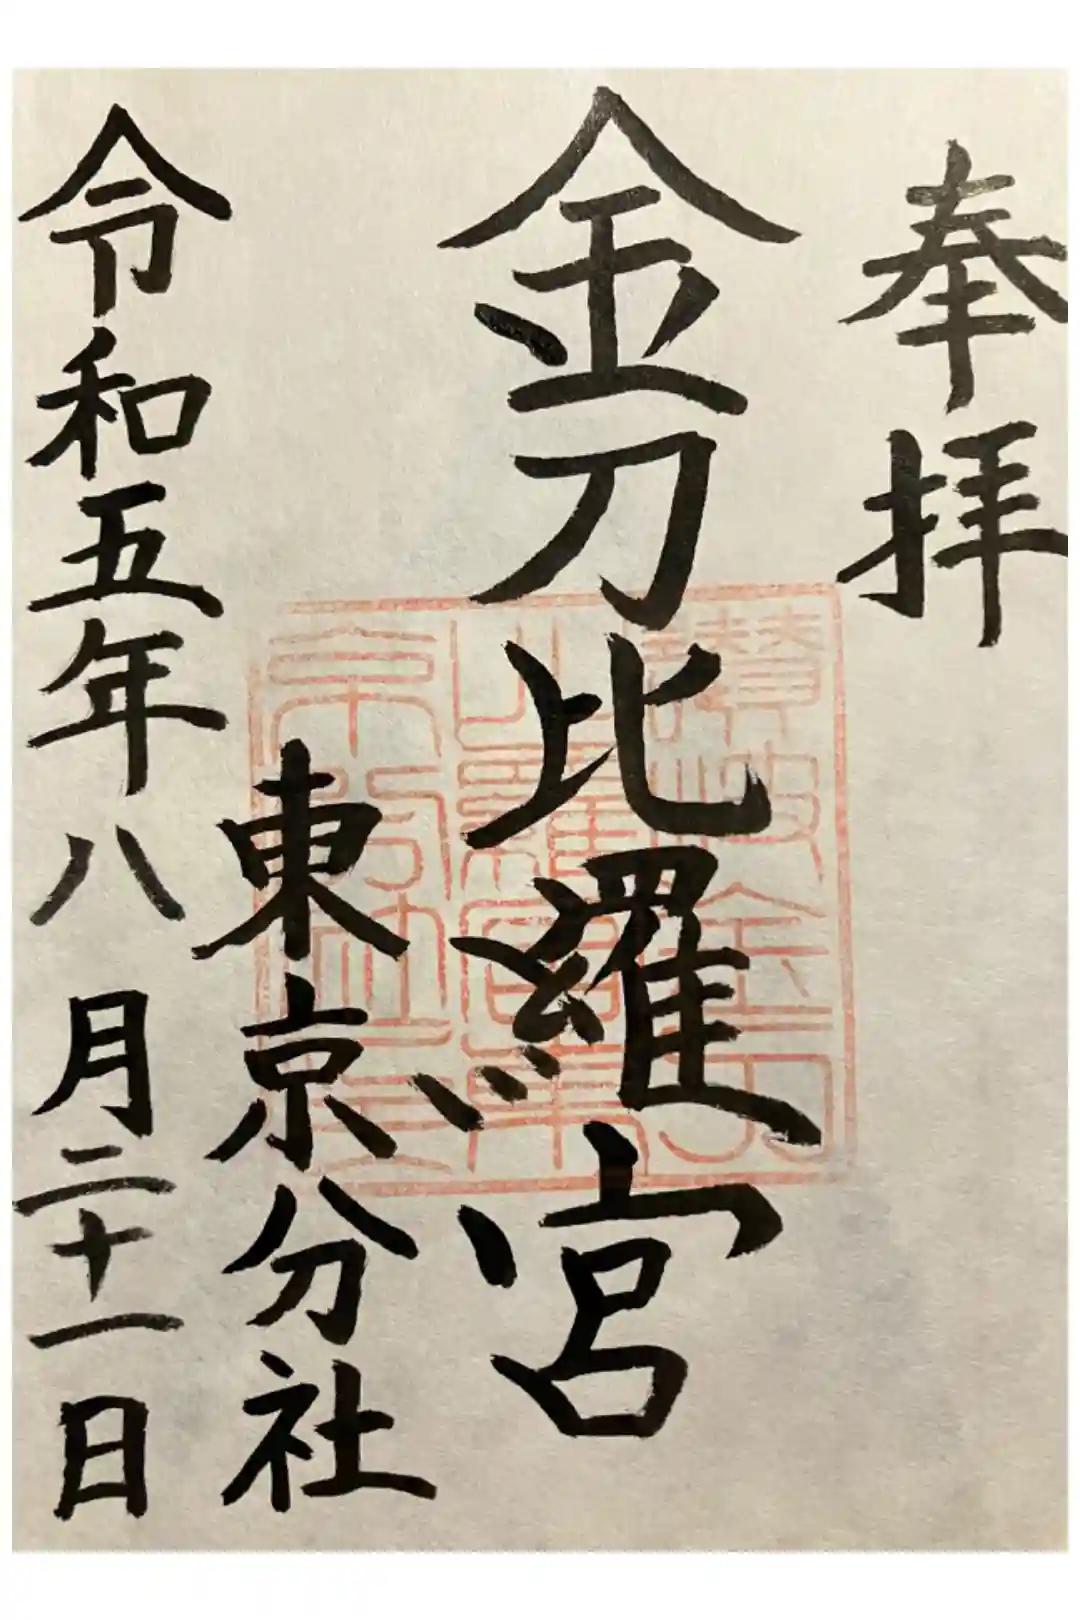 奉拝
金刀比羅宮
東京分社
令和五年八月二十一日